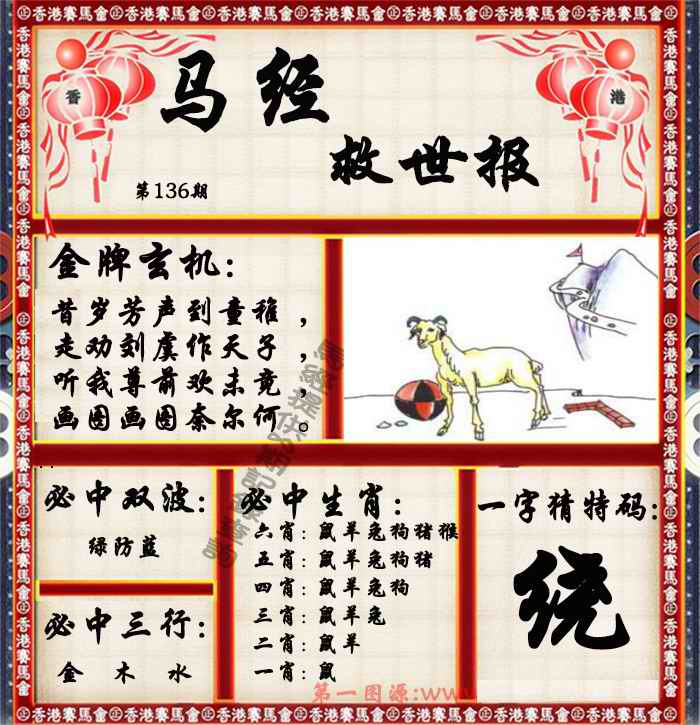 香港賽馬會
香
港
马经
救世报
第136期
金牌玄机：
昔岁芳声到童稚，
走劝刘虞作天子，
听我尊前欢未竟，
画图画图奈尔何。
必中双波：
绿防蓝
必中三行：
金 木 水
必中生肖：
六肖：鼠羊兔狗猪猴
五肖：鼠羊兔狗猪
四肖：鼠羊兔狗
三肖：鼠羊兔
二肖：鼠羊
一肖：鼠
一字猜特码：
绕
第一图源:www